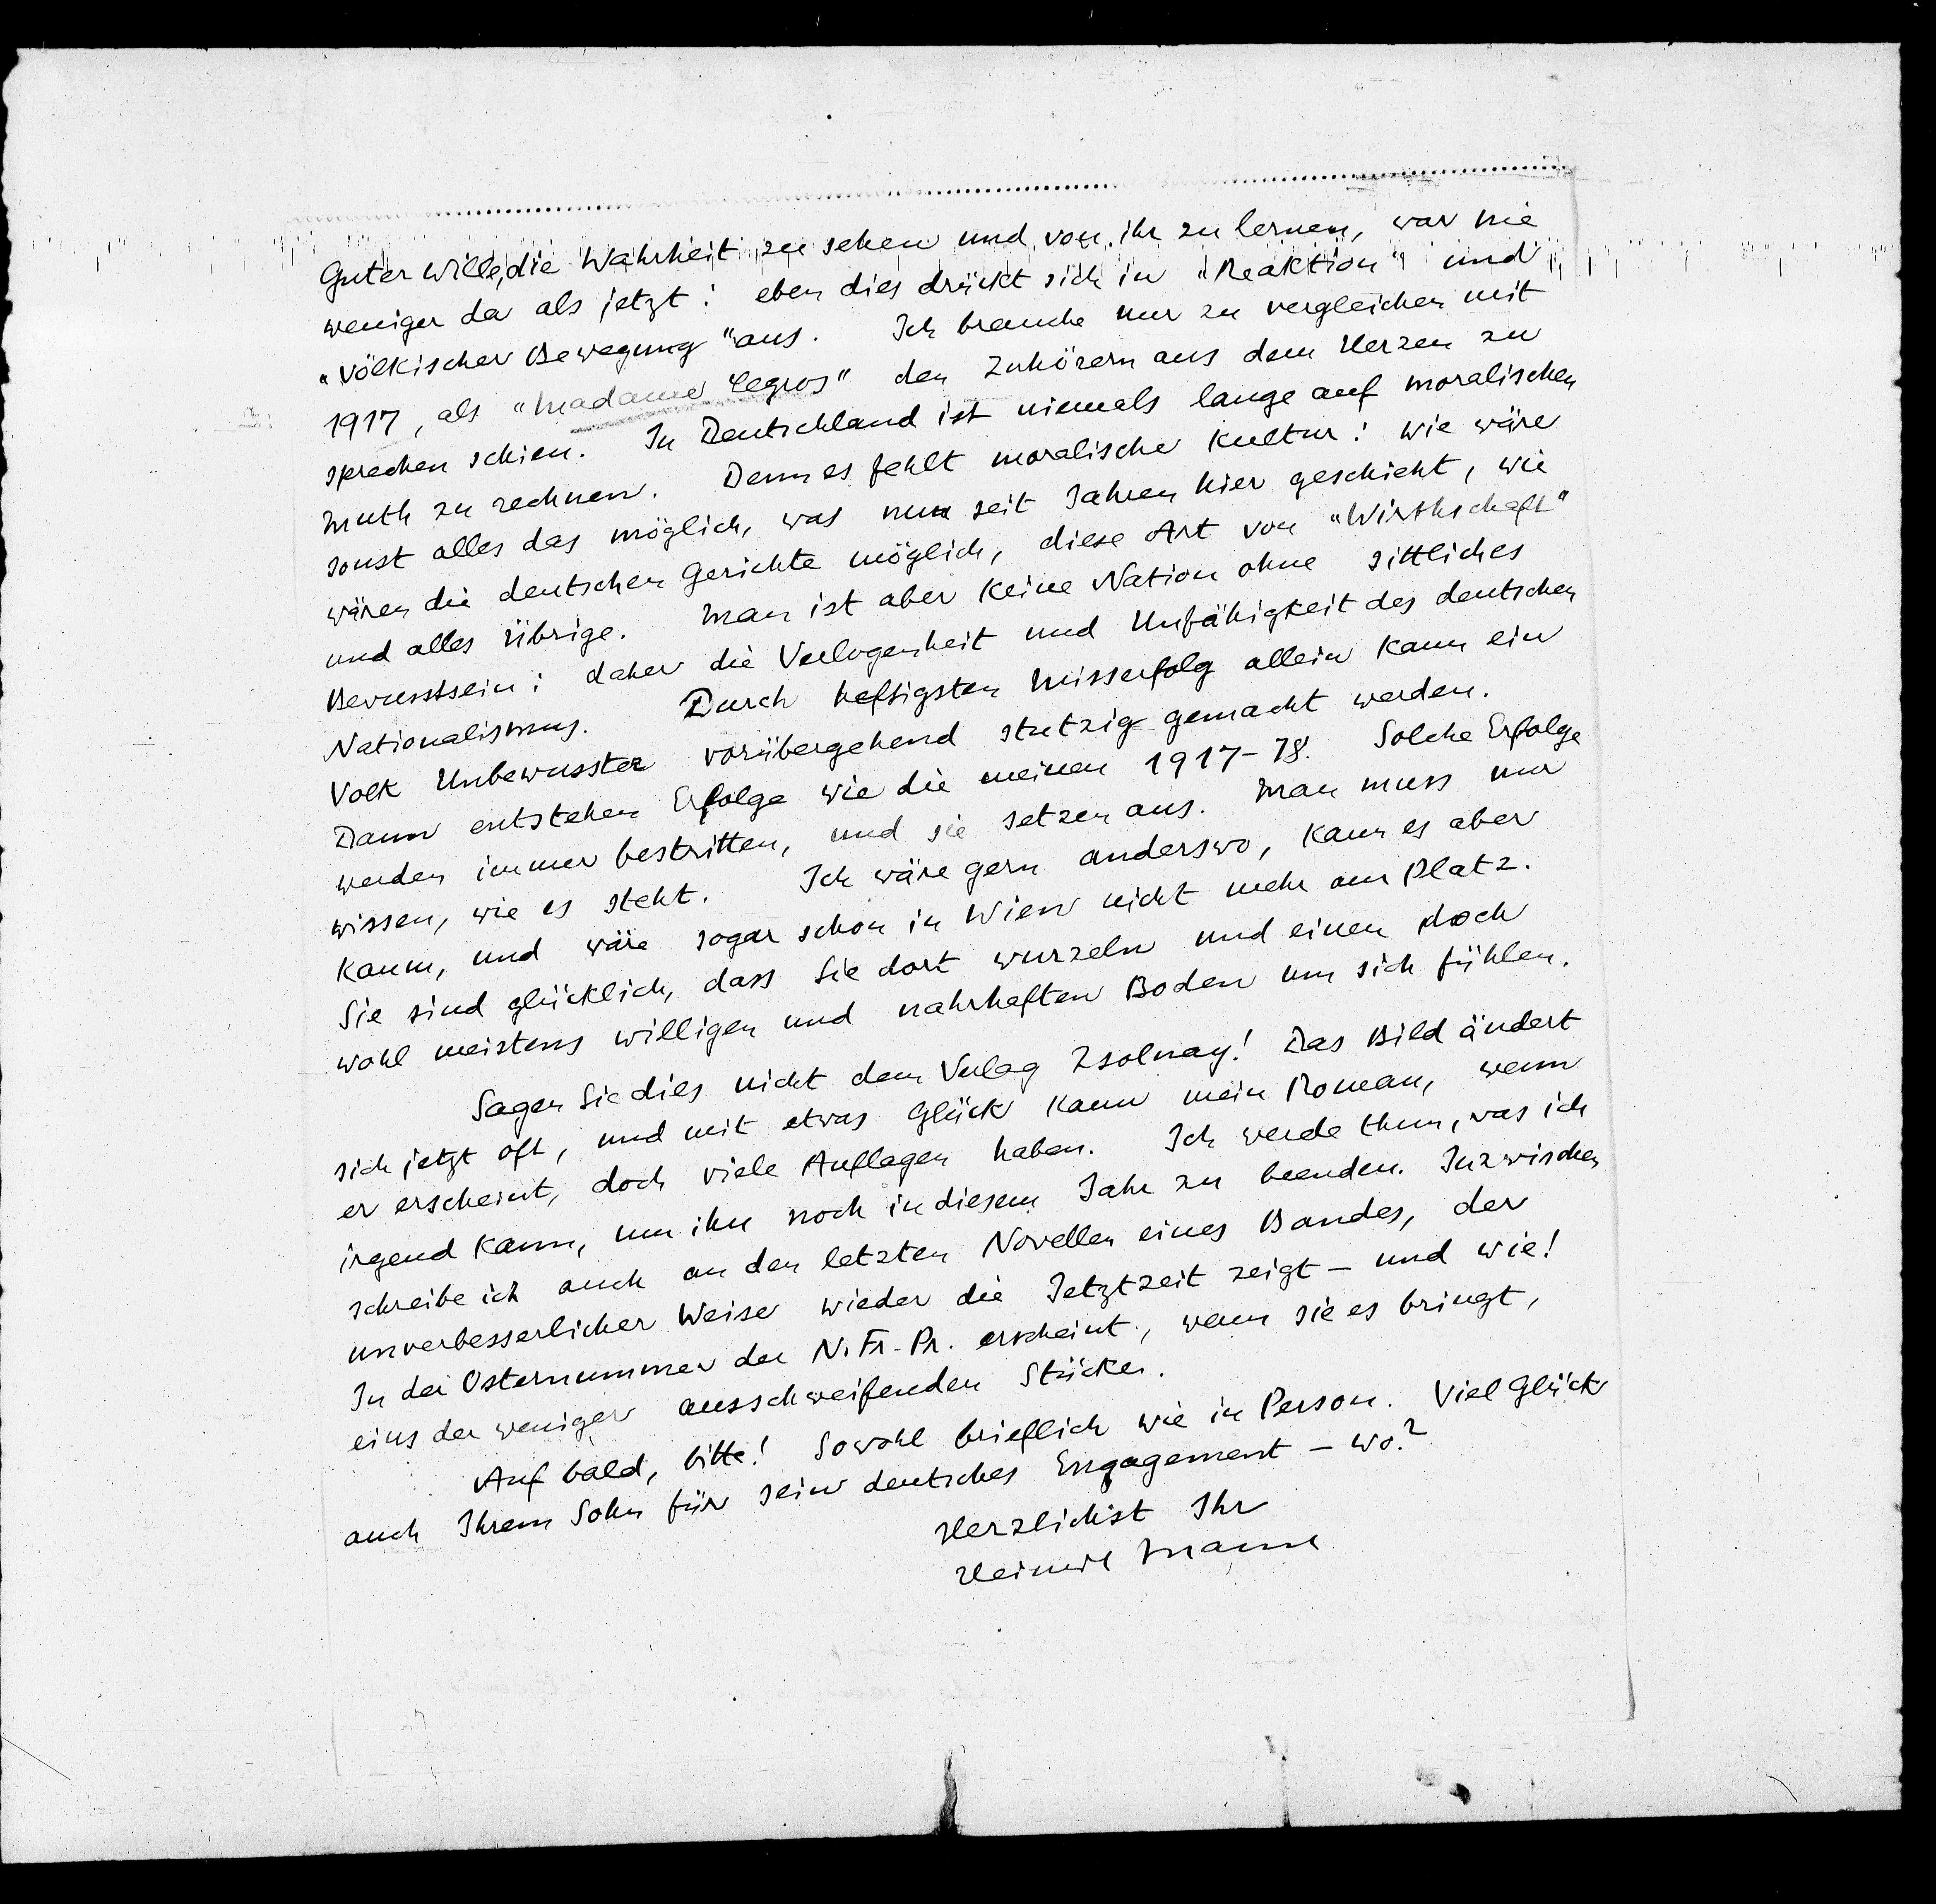 Guter Wille, die Wahrheit zu sehen und von ihr zu lernen, war nie
weniger da als jetzt: eben dies drückt sich in „Reaktion" und
„völkischer Bewegung" aus. Ich brauche nur zu vergleichen mit
1917, als „Madame Legros" den Zuhörern aus dem Herzen zu
sprechen schien. In Deutschland ist niemals lange auf moralischen
Muth zu rechnen. Denn es fehlt moralische Kultur: wie wäre
sonst alles das möglich, was nun seit Jahren hier geschieht, wie
wären die deutschen Gerichte möglich, diese Art von „Wirthschaft"
und alles Übrige. Man ist aber keine Nation ohne sittliches
Bewusstsein: daher die Verlogenheit und Unfähigkeit des deutschen
Nationalismus. Durch heftigsten Misserfolg allein kann ein
Volk Unbewusster vorübergehend stutzig gemacht werden.
Dann entstehen Erfolge wie die meinen 1917–18. Solche Erfolge
werden immer bestritten, und sie setzen aus. Man muss nur
wissen, wie es steht. Ich wäre gern anderswo, kann es aber
kaum, und wäre sogar schon in Wien nicht mehr am Platz.
Sie sind glücklich, dass Sie dort wurzeln und einen doch
wohl meistens willigen und nahrhaften Boden um sich fühlen.
Sagen Sie dies nicht dem Verlag Zsolnay! Das Bild ändert
sich jetzt oft, und mit etwas Glück kann mein Roman, wenn
er erscheint, doch viele Auflagen haben. Ich werde thun, was ich
irgend kann, um ihn noch in diesem Jahr zu beenden. Inzwischen
schreibe ich auch an den letzten Novellen eines Bandes, der
unverbesserlicher Weise wieder die Jetztzeit zeigt – und wie!
In der Osternummer der N. Fr. Pr. erscheint, wenn sie es bringt,
eins der weniger ausschweifenden Stücke.
Auf bald, bitte! Sowohl brieflich wie in Person. Viel Glück
auch Ihrem Sohn für sein deutsches Engagement – wo?
Herzlichst Ihr
Heinrich Mann